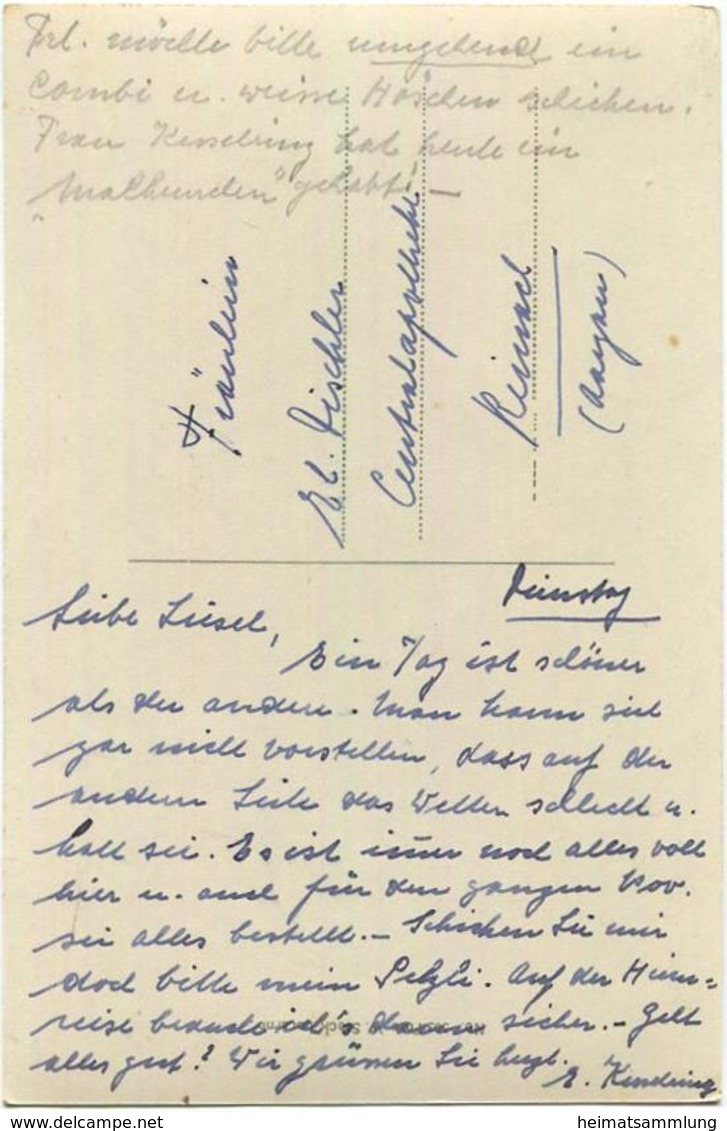 Frl. möchte bitte umgehend ein
Combi u. weisse Höschen schicken.
Frau Kesselring hat heute ein
gehabt! —
Fräulein
El. Tischler
Centralapotheke
Reinach
(Aargau)
Dienstag
Liebe Liesel,
Ein Tag ist schöner
als der andere. Man kann sich
gar nicht vorstellen, dass auf der
andern Seite das Wetter schlecht u.
kalt sei. Es ist im̄er noch alles voll
hier u. auch für den ganzen Nov.
sei alles bestellt. – Schicken Sie mir
doch bitte mein Pelzli. Auf der Heim=
reise brauche ich's dann sicher. – Gelt
alles gut? Wir grüssen Sie herzl.
E. Kesselring
heimatsammlung